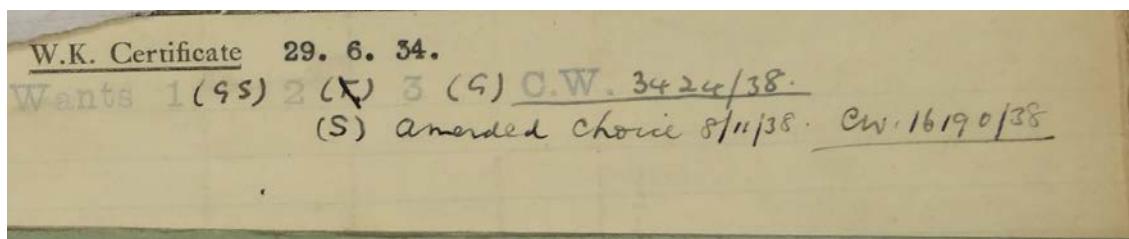 W.K. Certificate 29. 6. 34.
Wants 1 (GS) 2 (T) 3 (G) C.W. 3424/38.
(S) amended choice 8/11/38. CW. 16190/38